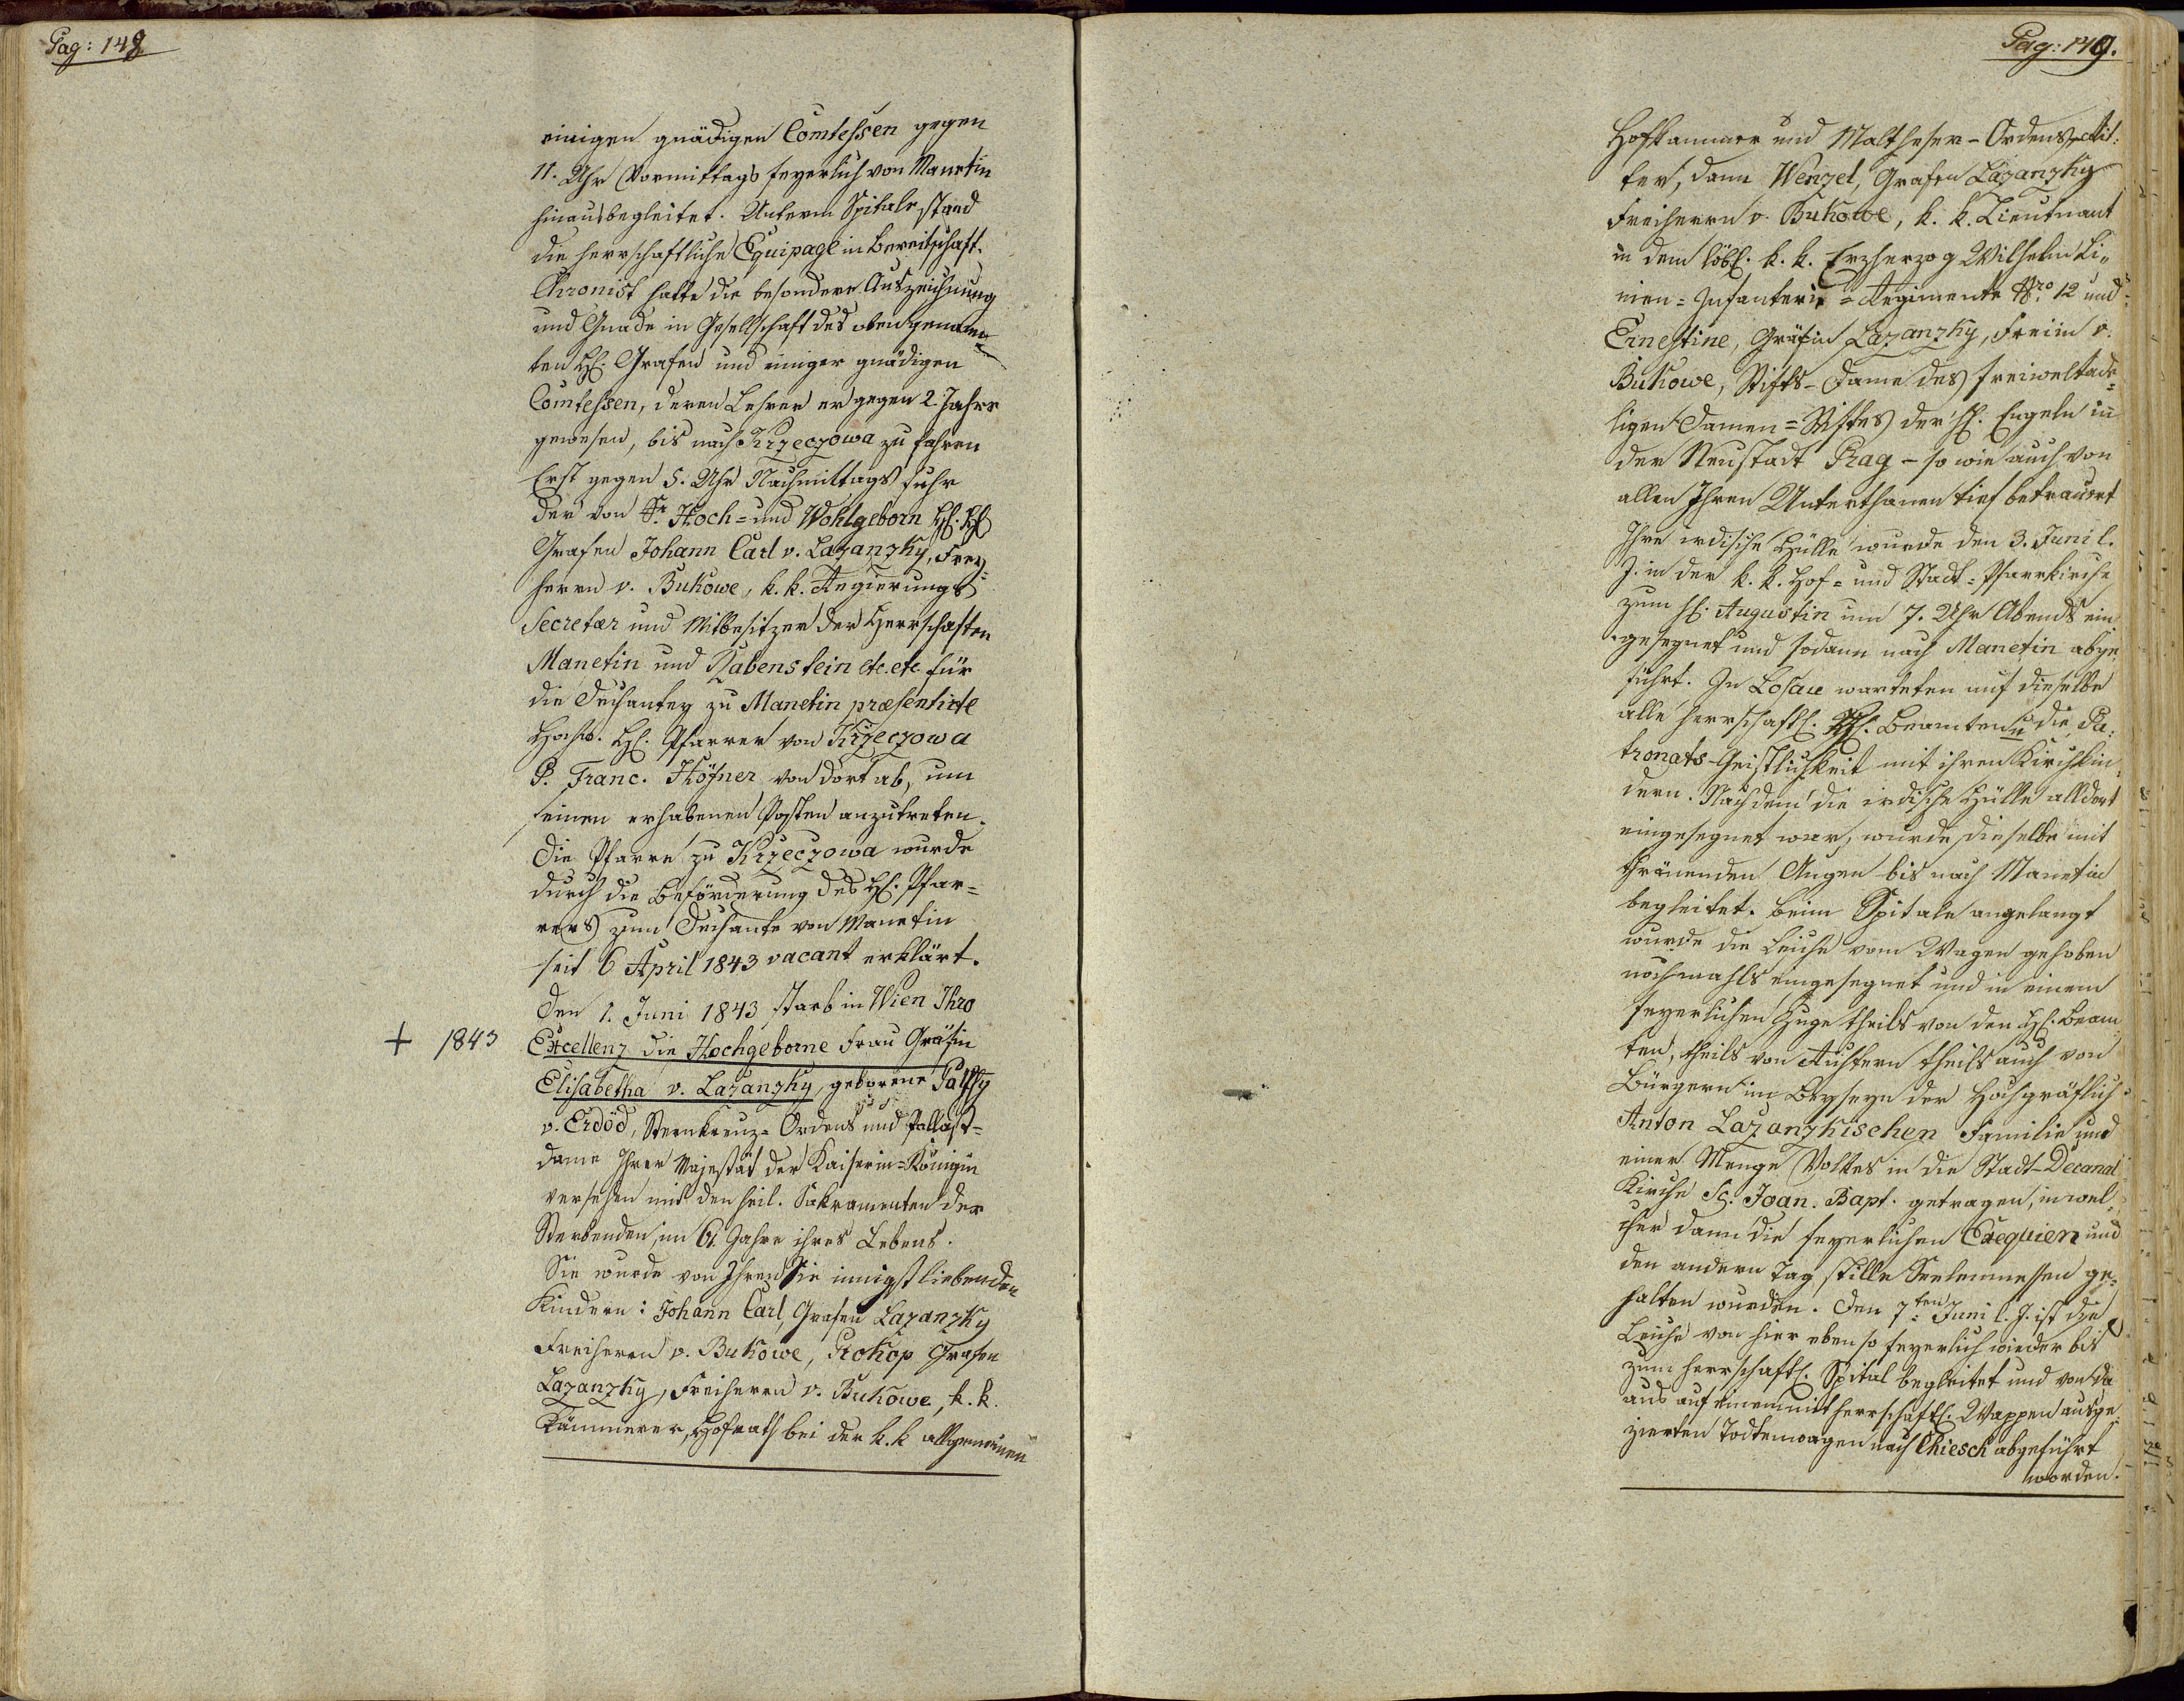 Pag: 148
einigen gnädigen Comtessen gegen
11. Uhr Vormittags feyerlich von Manetin
hinausbegleitet. Unterm Spitale stand
die herrschaftliche Equipage in Bereitschaft.
Chronist hatte die besondere Auszeichnung
und Gnade in Gesellschaft des obengenann=
ten H. Grafen und einiger gnädigen
Comtessen, deren Lehrer er gegen 2. Jahre
gewesen, bis nach Krzeczowa zu fahren
Erst gegen 5. Uhr Nachmittags fuhr
der von Sr. Hoch= und Wohlgeborn H. H.
Grafen Johann Carl v. Lazanzky, Frey=
herrn v. Bukowe, k. k. Regierungs
Secretär und Mitbesitzer der Herrschaften
Manetin und Rabenstein etc. etc. für
die Dechantey zu Manetin præsentirte
Hochw. H. Pfarrer von Krzeczowa
P. Franc. Höfner von dort ab, um
seinen erhabenen Posten anzutreten.
Die Pfarre zu Krzeczowa wurde
durch die Beförderung des H. Pfar=
rers zum Dechante von Manetin
seit 6 April 1843 vacant erklärt.
Den 1. Juni 1843 starb in Wien Ihro
+ 1843 Excellenz die Hochgeborne Frau Gräfin
Elisabetha v. Lazanzky, geborene Palffy
v. Erdöd, Sternkreuz= Ordens und Pallast=
dame Ihrer Majestät der Kaiserin=Königin
versehen mit den heil. Sakramenten der
Sterbenden, im 61. Jahre ihres Lebens.
Sie wurde von Ihren Sie innigst liebenden
Kindern: Johann Carl, Grafen Lazanzky
Freiherrn v. Bukowe, Prokop Grafen
Lazanzky, Freiherrn v. Bukowe, k. k.
Kämmerer, Hofrath bei der k. k allgemeinen
Pag: 149.
Hofkammer und Maltheser-Ordens-Rit:
ter, dann Wenzel, Grafen Lazanzky
Freiherrn v. Bukowe, k. k. Lieutnant
in dem löbl. k. k. Erzherzog Wilhelm Li„
nien=Infanterie=Regimente Nro. 12 und
Ernestine, Gräfin Lazanzky, Freiin v.
Bukowe, Stifts-Dame des freiweltade=
ligen Damen=Stiftes der h. Engeln in
der Neustadt Prag – so wie auch von
allen Ihren Unterthanen tief betrauert
Ihre irdische Hülle wurde den 3. Juni l.
J. in der k. k. Hof= und Stadt=Pfarrkirche
zum h. Augustin um 7. Uhr Abends ein
gesegnet und sodann nach Manetin abge
führt. In Losau warteten auf dieselbe
alle herrschaftl. H. Beamten u die Pa:
tronats-Geistlichkeit mit ihren Kirchkin:
dern. Nachdem die irdische Hülle alldort
eingesegnet war, wurde dieselbe mit
thränenden Augen bis nach Manetin
begleitet. Beim Spitale angelangt
wurde die Leiche vom Wagen gehoben
nochmahls eingesegnet und in einem
feyerlichen Zuge theils von den H. Beam
ten, theils von Richtern theils auch von
Bürgern im Beyseyn der Hochgräflich
Anton Lazanzkischen Familie und
einer Menge Volkes in die Stadt-Decanal
Kirche Sc. Joan. Bapt. getragen, in wel=
cher dann die feyerlichen Exequien und
den andern Tag stille Seelenmessen ge=
halten wurden. Den 7ten Juni l. J. ist die
Leiche von hier eben so feyerlich wieder bis
zum herrschaftl. Spital begleitet und von da
aus auf einem mit herrschaftl. Wappen ausge
zierten Todtenwagen nach Chiesch abgeführt
worden.